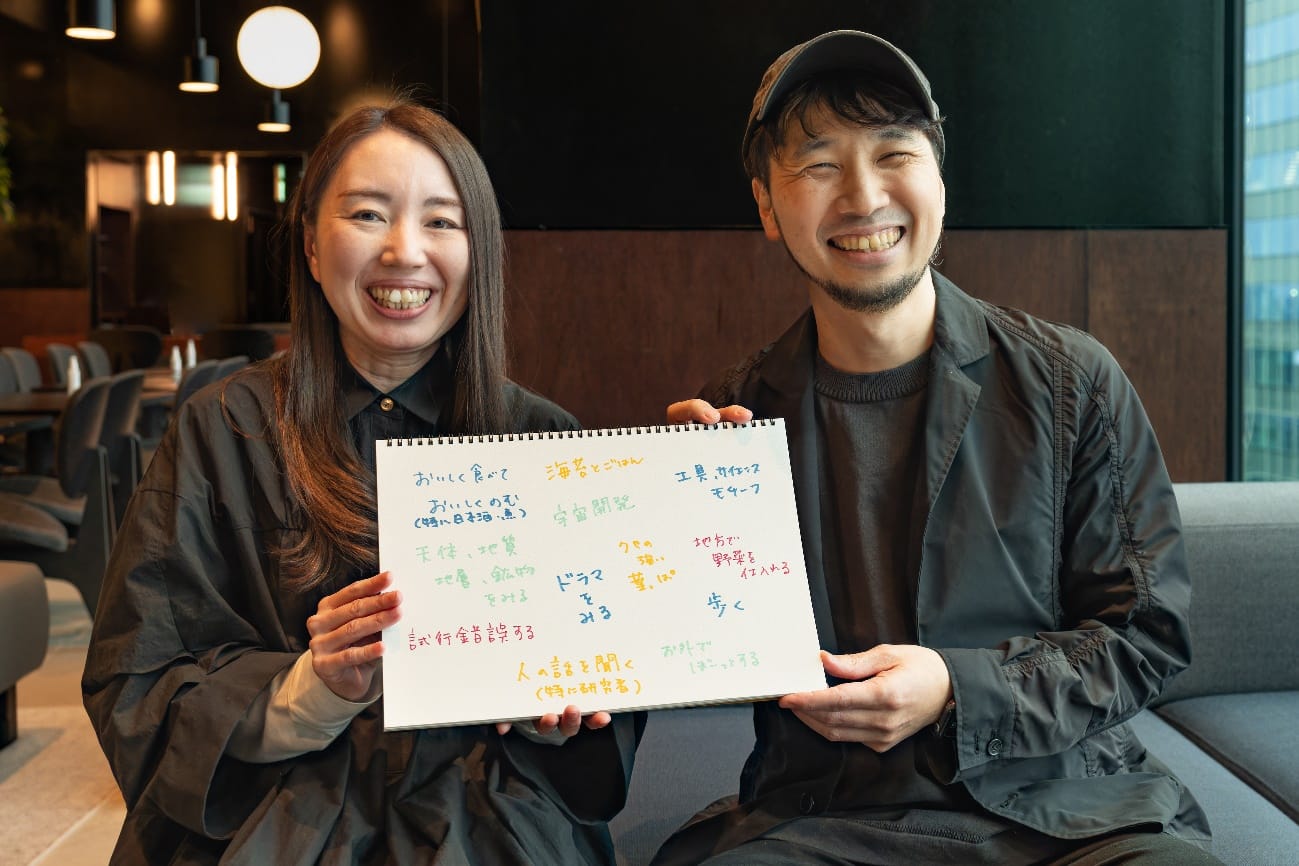 おいしく食べて
おいしくのむ
(特に日本酒、魚)
海苔とごはん
工具、サイエンス
モチーフ
宇宙開発
天体、地質
地層、鉱物
をみる
ドラマ
を
みる
クセの
強い
葉っぱ
地方で
野菜を
仕入れる
歩く
試行錯誤する
人の話を聞く
(特に研究者)
お外で
ぼーっとする